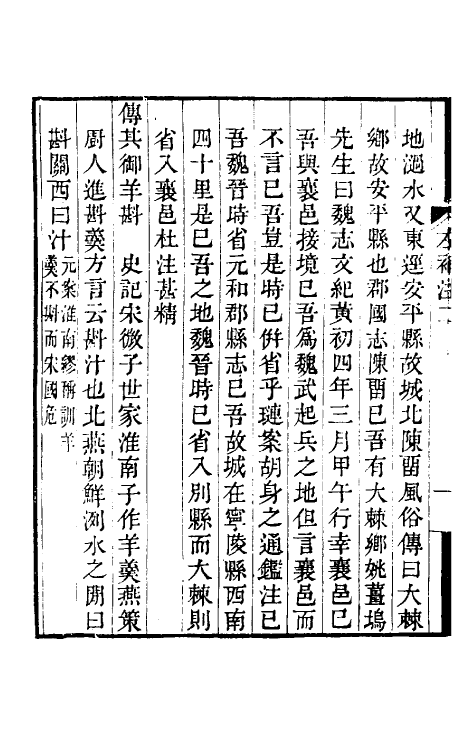 地濄水又東逕安平縣故城北陳留風俗傳曰大棘
鄉故安平縣也郡國志陳留巳吾有大棘鄉姚薑塢
先生曰魏志文紀黃初四年三月甲午行幸襄邑巳
吾與襄邑接境巳吾爲魏武起兵之地但言襄邑而
不言巳吾豈是時巳併省乎璉案胡身之通鑑注巳
吾魏晉時省元和郡縣志巳吾故城在寧陵縣西南
四十里是巳吾之地魏晉時巳省入別縣而大棘則
省入襄邑杜注甚精
傳其御羊斟　史記宋微子世家淮南子作羊羹燕策
廚人進斟羹方言云斟汁也北燕朝鮮洌水之閒曰
斟關西曰汁元案淮南繆稱訓羊羹不斟而宋國危